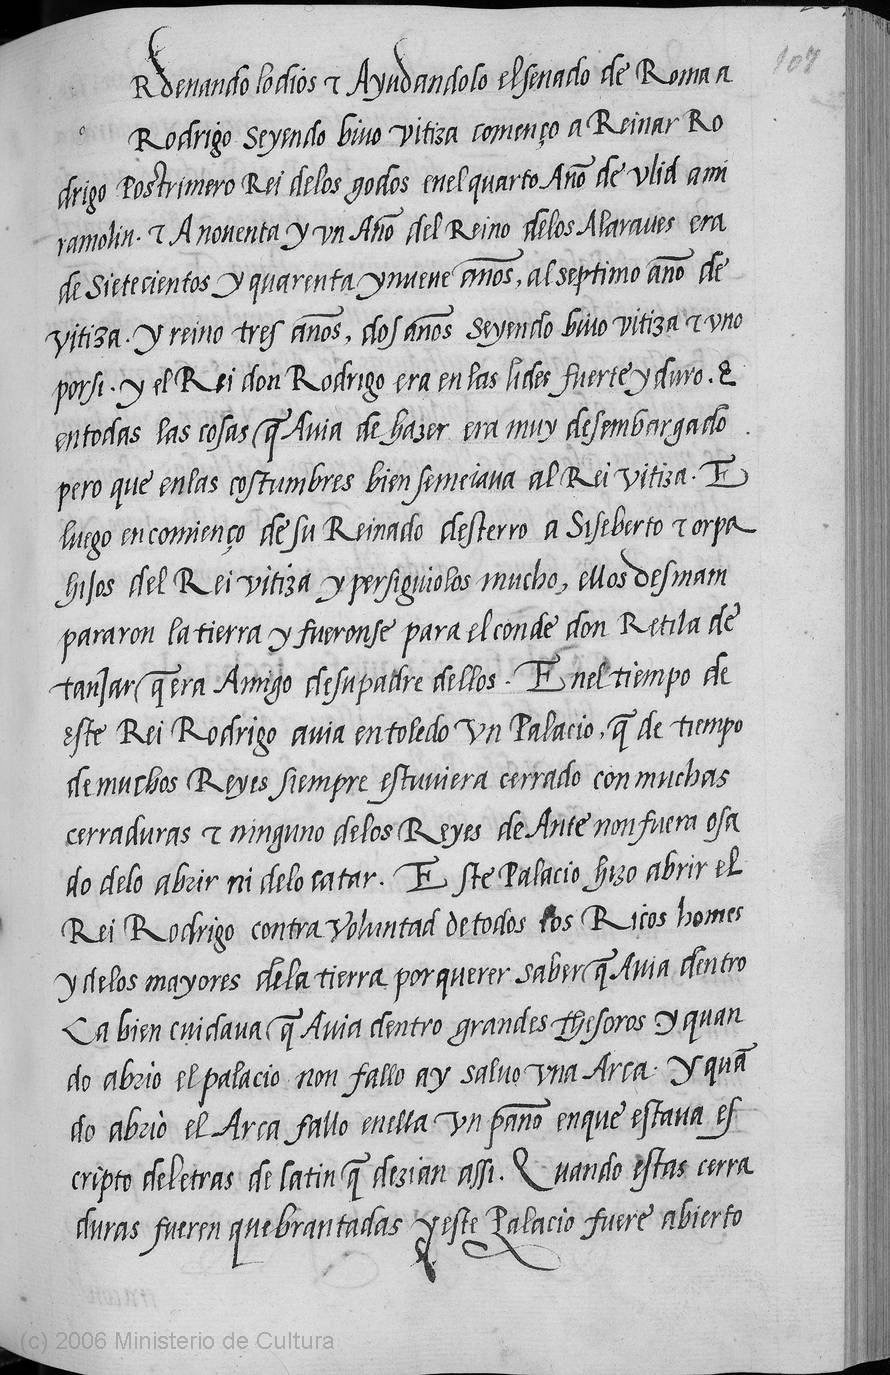 107
Rdenando lo dios τ Ayudandolo el senado de Roma a
o Rodrigo Seyendo bivo vitiza començo a Reinar Ro
drigo Postrimero Rei delos godos enel quarto Año de vlid ami
ramolin. τ A noventa y vn Año del Reino delos Alaraves era
de Sietecientos y quarenta y nueve años, al septimo año de
vitiza. y reino tres años, dos años seyendo bivo vitiza τ vno
por si. y el Rei don Rodrigo era en las lides fuerte y duro. E
en todas las cosas q̃ Avia de hazer era muy desembargado
pero que en las costumbres bien semeiava al Rei vitiza. E
luego en comienço de su Reinado desterro a Siseberto τ orpa
hijos del Rei vitiza y persiguiolos mucho, ellos desmam
pararon la tierra y fueronse para el conde don Retila de
tanjar q̃ era Amigo de su padre dellos. Enel tiempo de
este Rei Rodrigo avia en toledo Vn Palacio, q̃ de tiempo
de muchos Reyes siempre estuviera cerrado con muchas
cerraduras τ ninguno delos Reyes de Ante non fuera osa
do delo abrir ni delo catar. Este Palacio hizo abrir el
Rei Rodrigo contra Voluntad de todos los Ricos homes
y delos mayores dela tierra por querer saber q̃ Avia dentro
Ca bien cuidava q̃ Avia dentro grandes thesoros y quan
do abrio el palacio non fallo ay salvo vna Arca. y quã
do abrio el Arca fallo enella Vn paño enque estava es
cripto de letras de latin q̃ dezian assi. Quando estas cerra
duras fueren quebrantadas y este Palacio fuere abierto
(c) 2006 Ministerio de Cultura